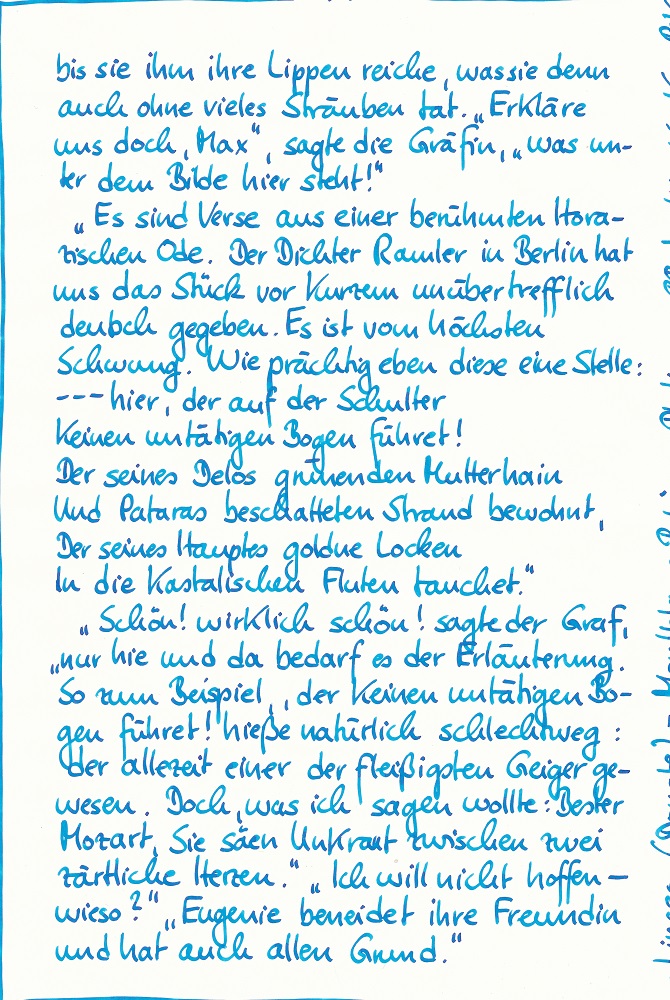 bis sie ihm ihre Lippen reiche, was sie denn
auch ohne vieles Sträuben tat. „Erkläre
uns doch, Max“, sagte die Gräfin, „was un-
ter dem Bilde hier steht!“
„Es sind Verse aus einer berühmten Hora-
zischen Ode. Der Dichter Ramler in Berlin hat
uns das Stück vor Kurzem unübertrefflich
deutsch gegeben. Es ist vom höchsten
Schwung. Wie prächtig eben diese eine Stelle:
--- hier, der auf der Schulter
Keinen untätigen Bogen führet!
Der seines Delos grünenden Mutterhain
Und Pataras beschatteten Strand bewohnt,
Der seines Hauptes goldne Locken
In die Kastalischen Fluten tauchet.“
„Schön! wirklich schön! sagte der Graf,
„nur hie und da bedarf es der Erläuterung.
So zum Beispiel, ‚der keinen untätigen Bo-
gen führet!‘ hieße natürlich schlechtweg :
der allezeit einer der fleißigsten Geiger ge-
wesen. Doch, was ich sagen wollte: Bester
Mozart, Sie säen Unkraut zwischen zwei
zärtliche Herzen.“ „Ich will nicht hoffen –
wieso?“ „Eugenie beneidet ihre Freundin
und hat auch allen Grund.“